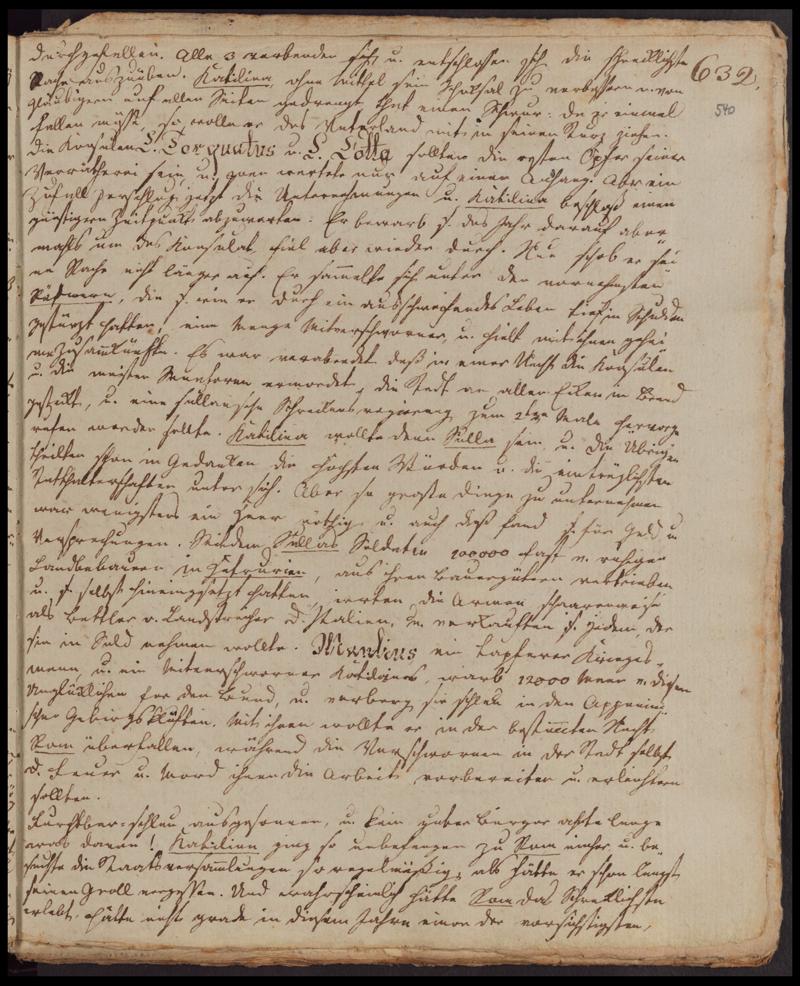 durchzufallen. Alle 3 verbanden sich, u. entschlossen sich die schrecklichste
632.
540
Rache auszuüben. Katilina, ohne Mittel sein Schicksal zu verbessern u. von
Gläubigern auf allen Seiten gedrängt that einen Schwur: da er einmal
fallen müsse so wolle er das Vaterland mit in seinen Sturz ziehen.
Die Konsulen L. Torquatus u. L. Cotta sollten die ersten Opfer seiner
Verrätherei sein, u. man wartete nur auf einen Anhang. Aber ein
Zufall zerschlug jetzt die Unternehmungen u. Katilina beschloß einen
günstigern Zeitpunkt abzuwarten. Er bewarb s. das Jahr darauf aber¬
mahls um das Konsulat, fiel aber wieder durch. Nun schob er sei¬
ne Rache nicht länger auf. Er sammelte sich unter den vornehmsten
Römern, die s. wie er durch ein ausschweifendes Leben tief in Schulden
gestürzt hatten, eine Menge Mitverschworner, u. hielt mit ihnen gehei
me Zusammkünfte. Es war verabredet daß in einer Nacht die Konsulen
u. die meisten Senatoren ermordet, die Stadt an allen Ecken in Brand
gesteckt, u. eine sullanische Schreckensregierung zum 2ten Male hervorge
rufen werden sollte. Katilina wollte dann Sulla sein, u. die Übrigen
theilten schon in Gedanken die höchsten Würden u. die einträglichsten
Statthalterschaften unter sich. Aber so große Dinge zu unternehmen
war wenigstens ein Heer nöthig, u. auch dieß fand s. für Geld u
Versprechungen. Seitdem Sullas Soldaten 100000 fast v. ruhigen
Landbebauern in Hetrurien, aus ihren Bauergütern vertrieben
u. s. selbst hineingesetzt hatten, irrten die Armen schaarenweise
als Bettler u. Landstreicher d. Italien, u. verkauften s. jedem, der
sie in Sold nehmen wollte. Manlius ein tapferer Kriegs¬
mann, u. ein Mitverschworner Katilinas, warb 12000 Mann v. diesen
Unglücklichen für den Bund, u. verbarg sie schlau in den Appenini
schen Gebirgsklüften. Mit ihnen wollte er in der bestimmten Nacht
Rom überfallen, während die Verschwornen in der Stadt selbst
d. Feuer u. Mord ihnen die Arbeit vorbereiten u. erleichtern
sollten.
Furchtbar=schlau ausgesonnen, u. kein guter Bürger ahnte lange
was davon! Katilina ging so unbefangen zu Rom umher u. be¬
suchte die Staatsversammlungen so regelmäßig, als hätte er schon längst
seinen Groll vergessen. Und wahrscheinlich hätte Rom das Schrecklichste
erlebt, hätte nicht grade in diesem Jahre einer der vorsichtigsten,